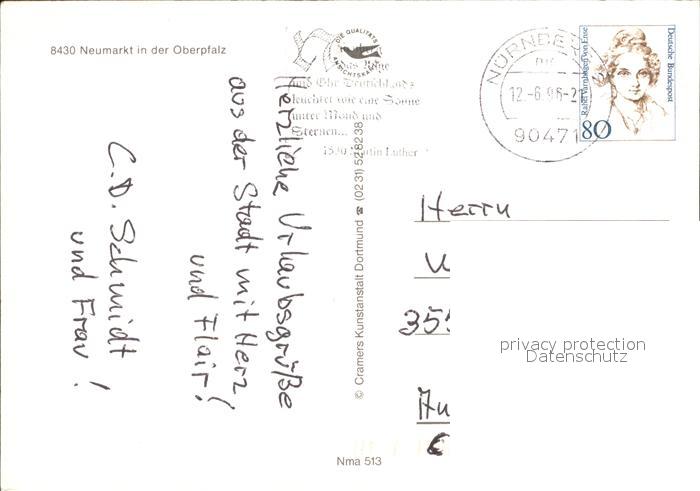 8430 Neumarkt in der Oberpfalz
DIE QUALITÄTS
ANSICHTSKARTE
und Ehr Deutschlands
leuchtet wie eine Sonne
unter Mond und
Sternen...
1530 Martin Luther
NÜRNBERG
12.-6.96-21
90471
Rahel Varnhagen von Ense
Deutsche Bundespost
80
Herzliche Urlaubsgrüße
aus der Stadt mit Herz
und Flair!
C.D. Schmidt
und Frau!
© Cramers Kunstanstalt Dortmund ☎ (0231) 528238
Herrn
355
privacy protection
Datenschutz
Nma 513